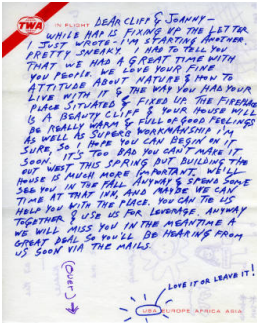 TWA
IN FLIGHT
DEAR CLIFF & JOANNY-
WHILE HAP IS FIXING UP THE LETTER
I JUST WROTE- I'M STARTING ANOTHER.
PRETTY SNEAKY. I HAD TO TELL YOU
THAT WE HAD A GREAT TIME WITH
YOU PEOPLE. WE LOVE YOUR FINE
ATTITUDE ABOUT NATURE & HOW TO
LIVE WITH IT & THE WAY YOU HAD YOUR
PLACE SITUATED & FIXED UP. THE FIREPLACE
IS A BEAUTY CLIFF & YOUR HOUSE WILL
BE REALLY WARM & FULL OF GOOD FEELINGS
AS WELL AS SUPERB WORKMANSHIP I'M
SURE, SO I HOPE YOU CAN BEGIN ON IT
SOON. IT'S TOO BAD YOU CAN'T MAKE IT
OUT WEST THIS SPRING BUT BUILDING THE
HOUSE IS MUCH MORE IMPORTANT. WE'LL
SEE YOU IN THE FALL ANYWAY & SPEND SOME
TIME AT THAT INK AND MAYBE WE CAN
HELP YOU WITH THE PLACE. YOU CAN TIE US
TOGETHER & USE US FOR LEVERAGE. ANYWAY
WE WILL MISS YOU IN THE MEANTIME A
GREAT DEAL SO YOU'LL BE HEARING FROM
US SOON VIA THE MAILS.
(OVER)
LOVE IT OR LEAVE IT!
USA EUROPE AFRICA ASIA